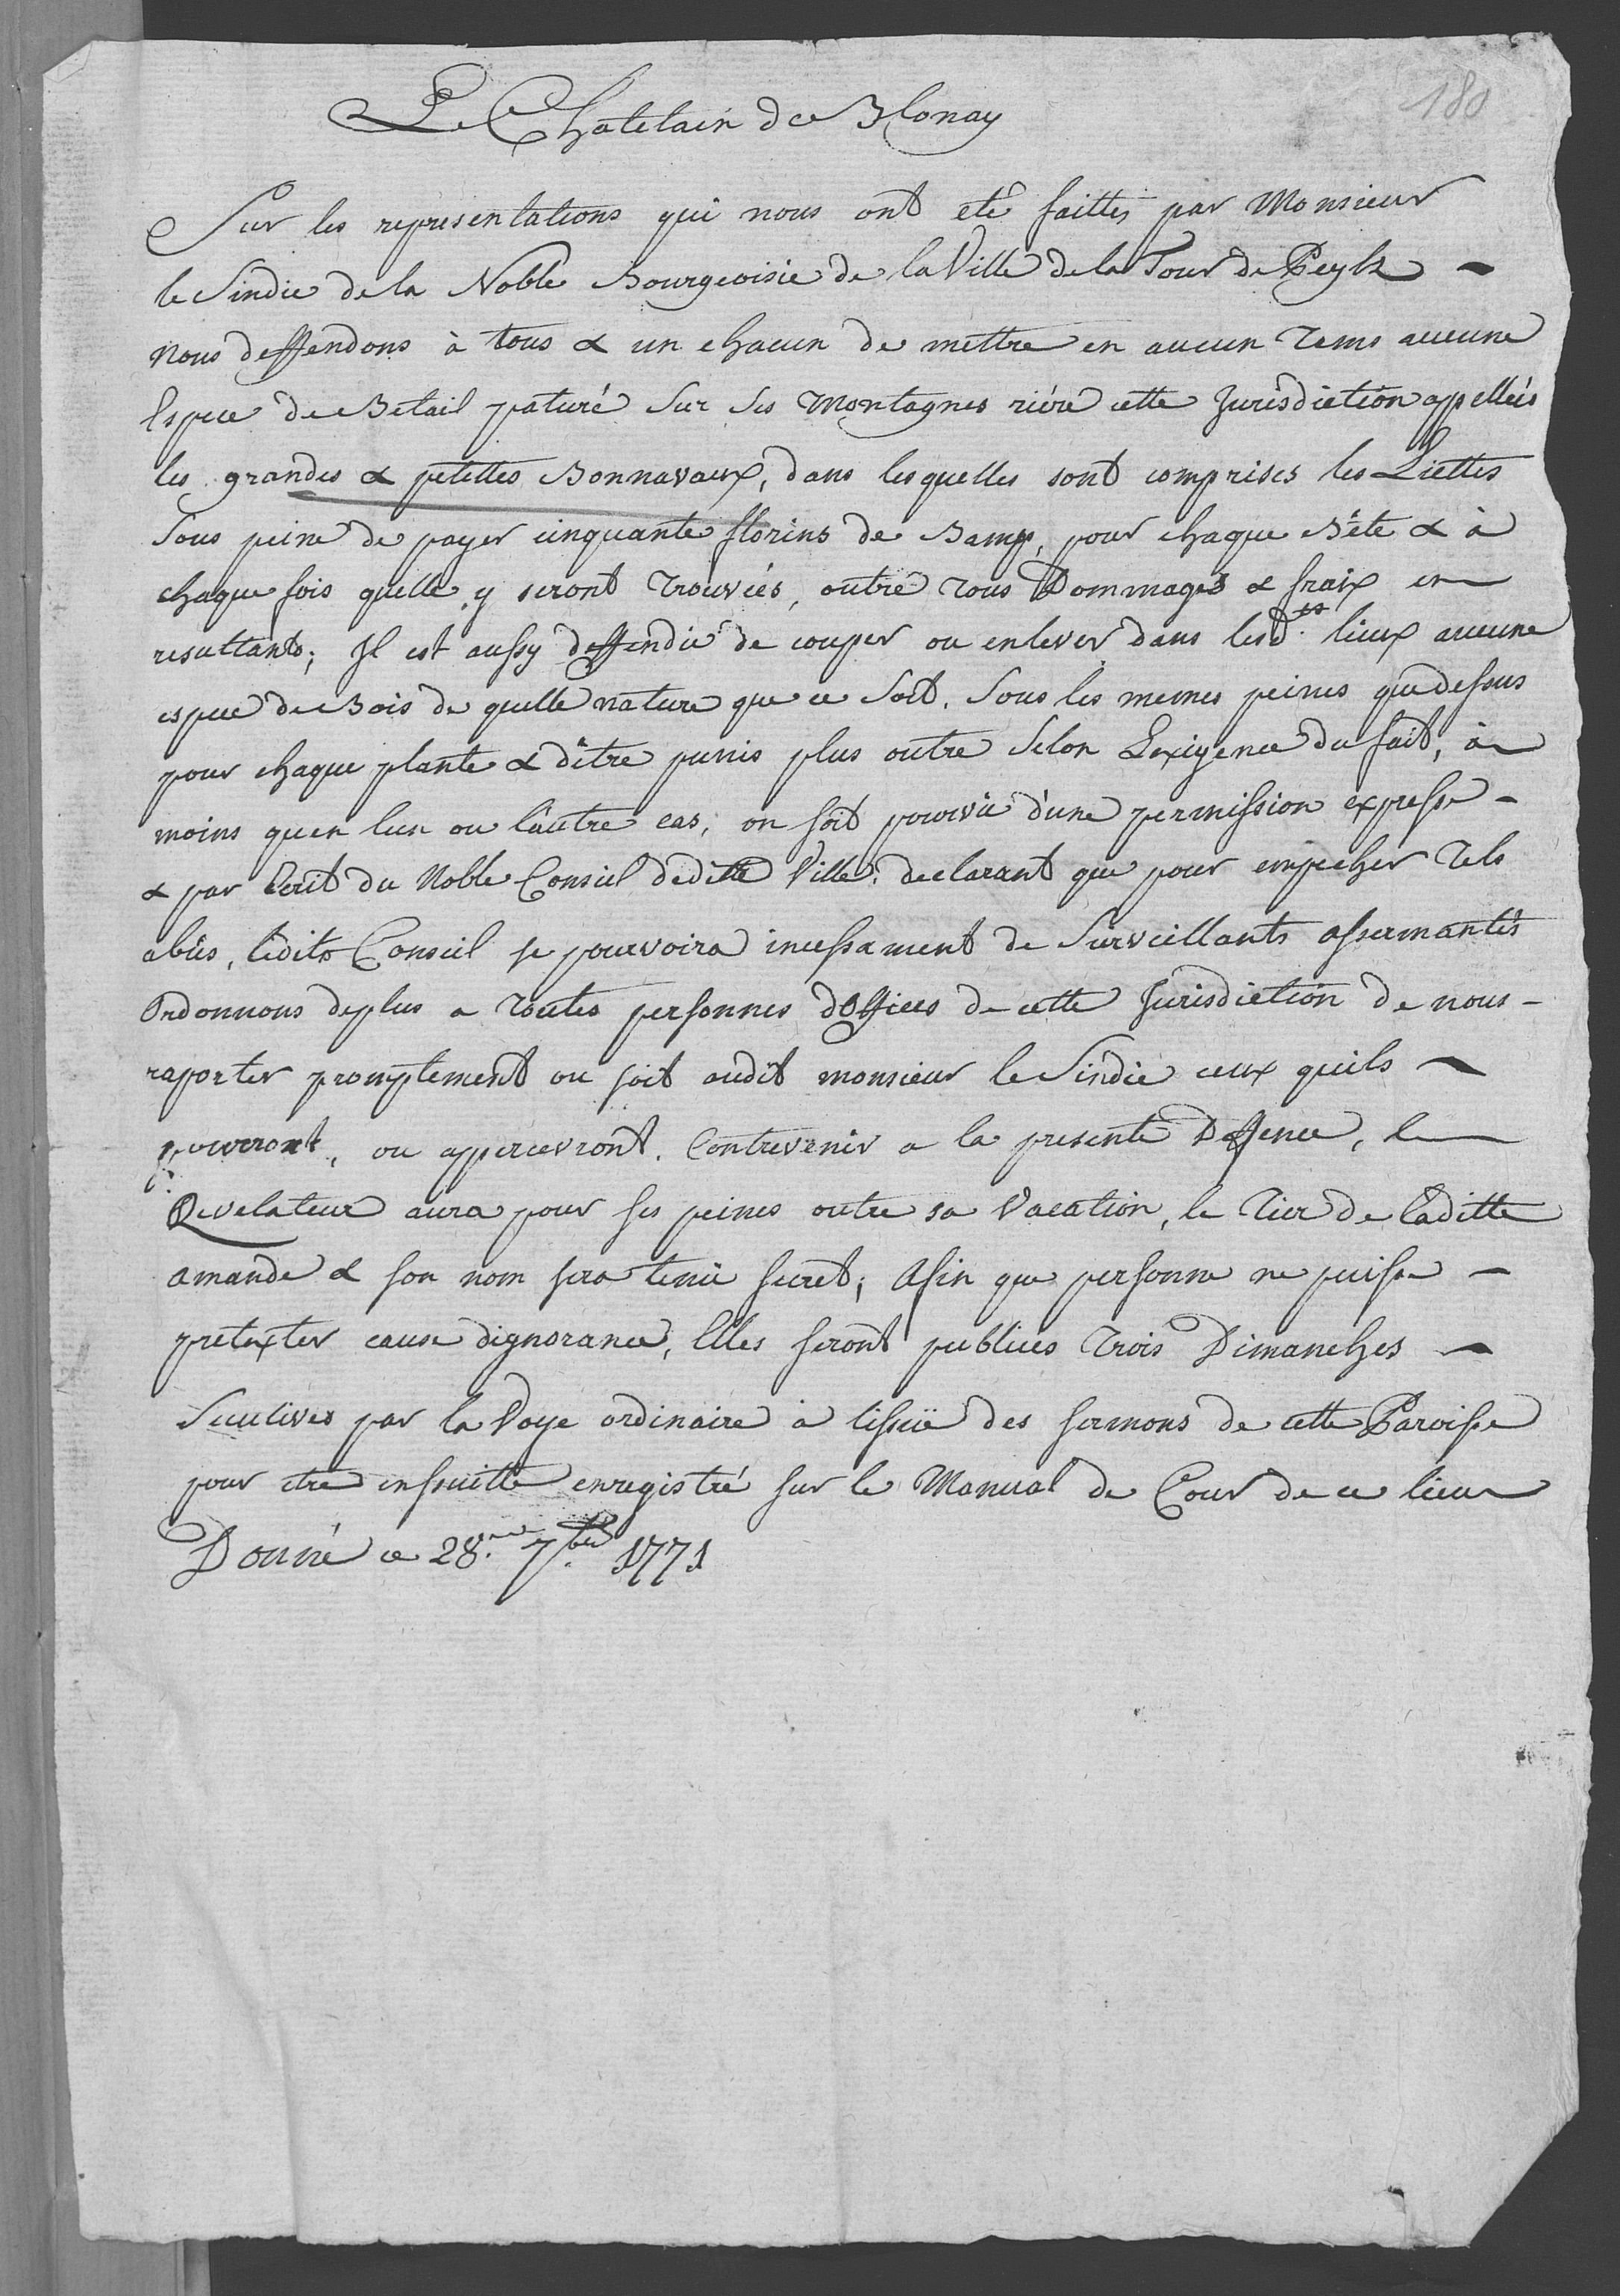 180
Le Chatelain de Blonay
Sur les representations qui nous ont eté faittes par Monsieur
le Sindic de la Noble Bourgeoisie de la Ville de la Tour de Peylz
nous deffendons à tous & un chacun de mettre en aucun tems aucune
Espece de Betail paturé sur ses Montagnes riére cette Jurisdiction appellées
les grandes & petittes Bonnavaux, dans lesquelles sont comprises les Liettes
Sous peine de payer cinquante florins de Bamp, pour chaque Bête & à
chaque fois quelle y seront trouvées, outre tous Dommages & fraix en
resultants; Il est aussy deffendu de couper ou enlever dans lesd.ts lieux aucune
espece de Bois de quelle nature que ce soit. Sous les memes peines que dessus
pour chaque plante & dêtre punis plus outre Selon Lexigence du fait, à
moins quen lun ou lautre cas, on soit pourvû d'une permission expresse
& par Ecrit du Noble Conseil de ditte Ville: declarant que pour empecher tels
abûs, ledit Conseil se pourvoira incessament de Surveillants assermantés
Ordonnons deplus a toutes personnes doffices de cette Jurisdiction de nous
raporter promptement ou soit audit monsieur le Sindic ceux quils
pouvront, ou appercevront. Contrevenir a la presente Deffence, le
Revelateur aura pour ses peines outre sa Vacation, le tier de laditte
amande & son nom sera tenu secret; Afin que personne ne puisse
pretexter cause dignorance, Elles seront publiées trois Dimanches
Seculives par la Voye ordinaire à lissuë des sermons de cette Paroisse
pour etre ensuitte enregistré sur le Manual de Cour de ce lieu
Donné ce 28.me 7.bre 1771